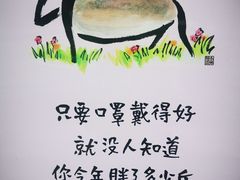 只要口罩戴得好
就没人知道
你今年胖了多少斤